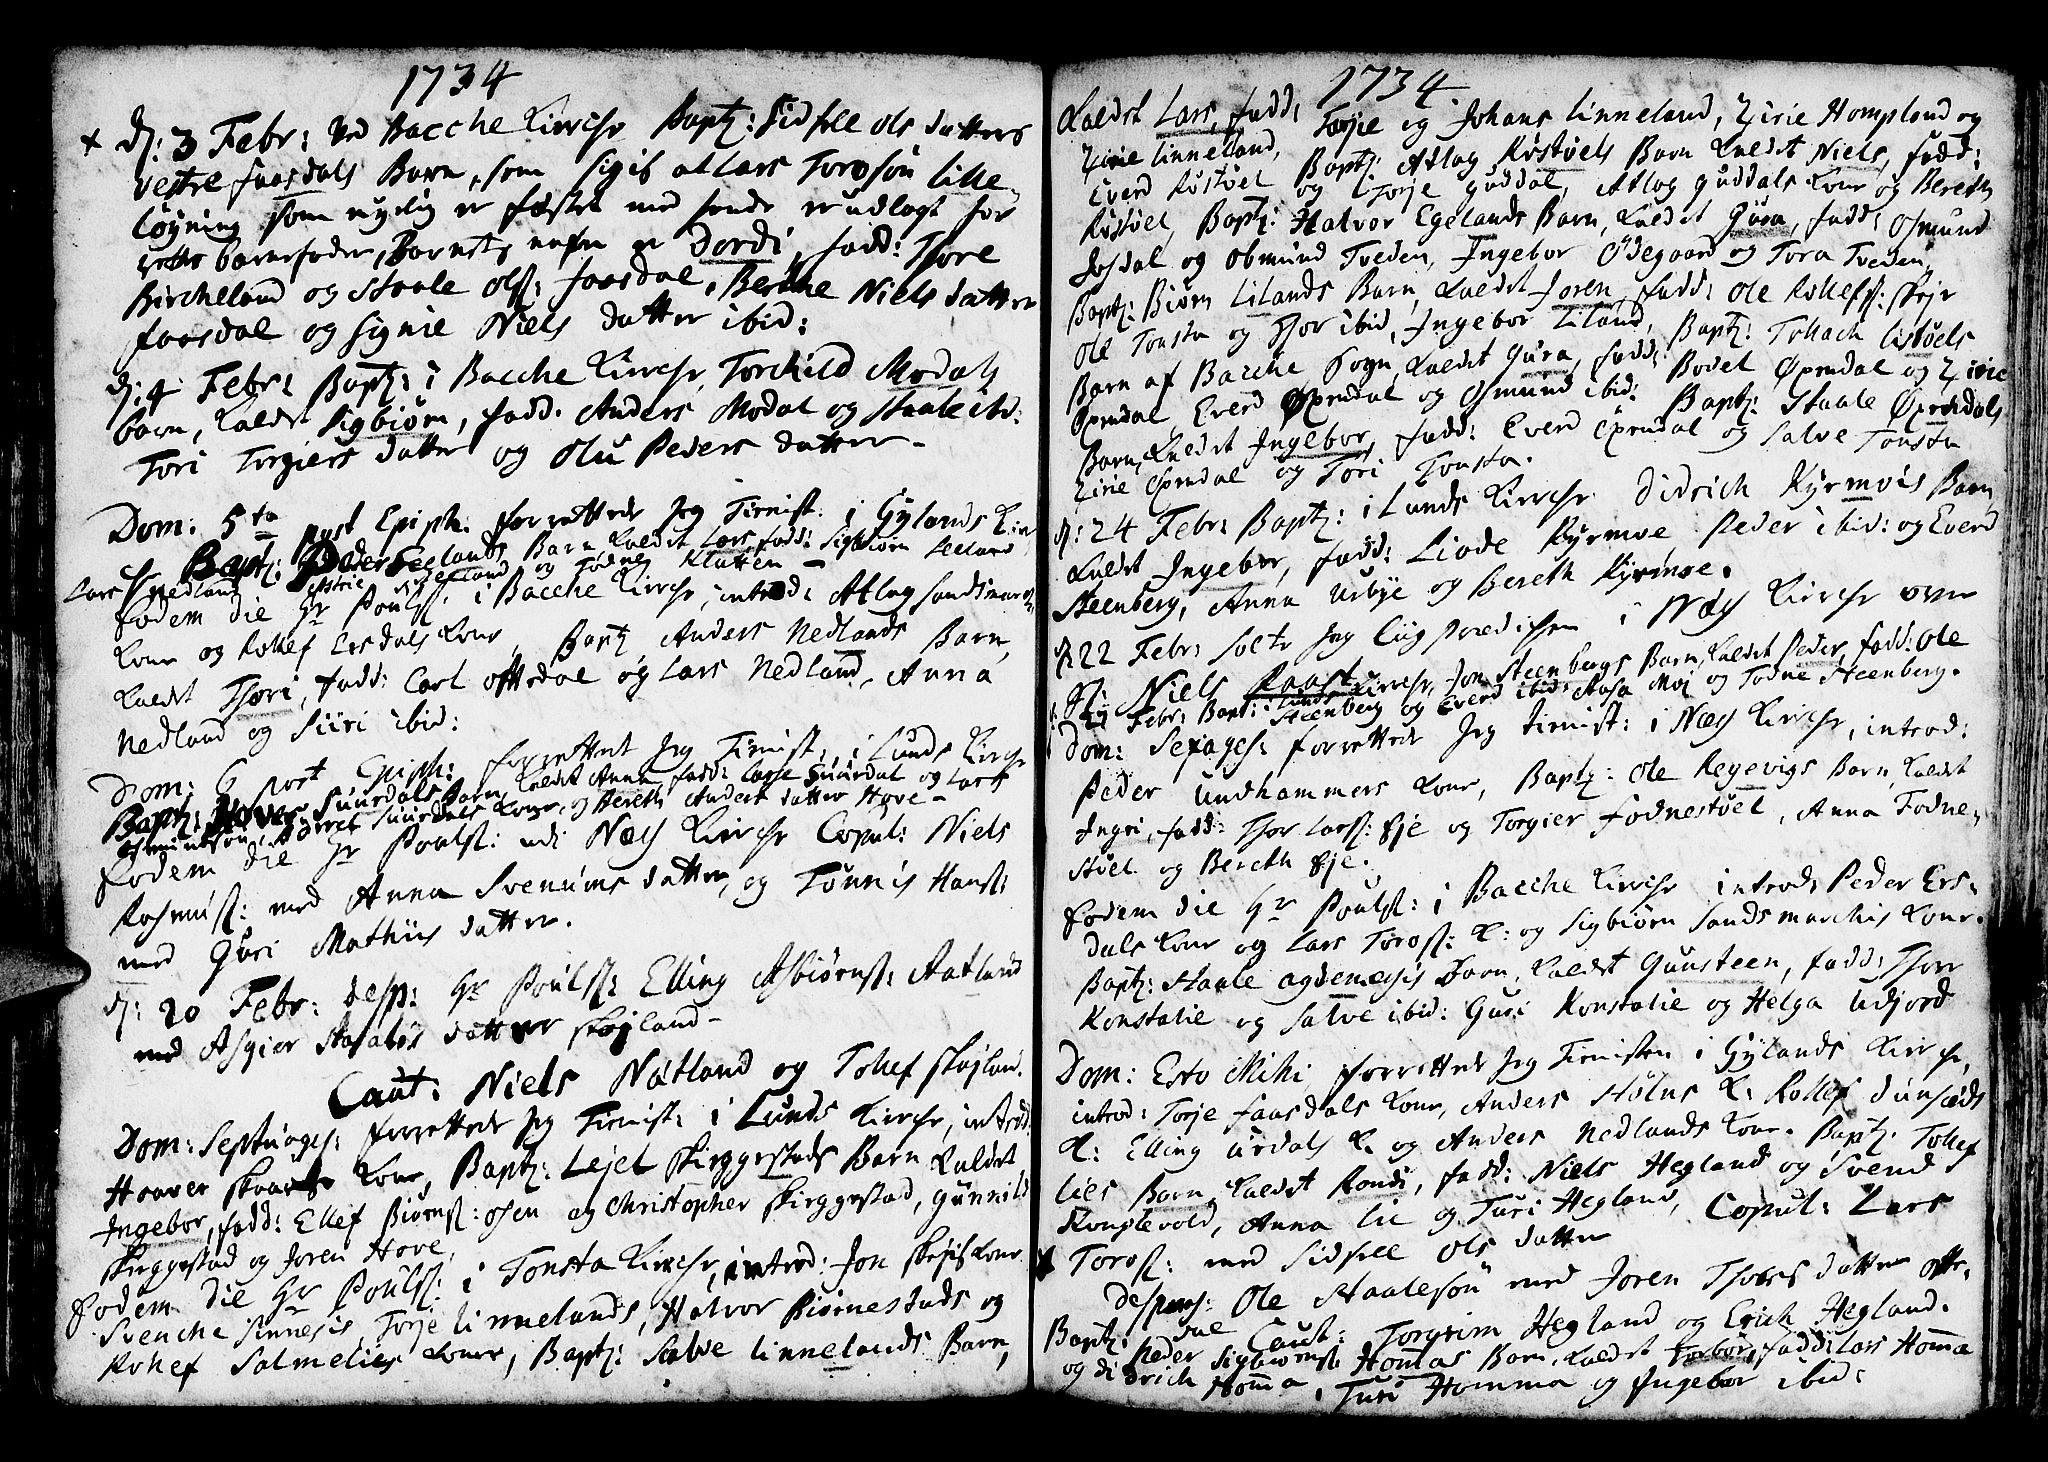 1734
+ d: 3 Febr: ved Bacche Kirche Bapt: Sidsele Ols datters
vestre faasdals Barn, som sigis at Lars Toroson lille
løyning som nylig er fæstet med hende er udlagt for
rette barnefader, Barnets nafn er Dordi, fadd: Thore
Bircheland og Staale Ols: faasdal, Berthe Niels datter
faasdal og Signie Niels datter ibid:
d: 4 Febr: Bapt: i Bacche Kirche Torchild Modals
barn, kaldet Sigbiørn, fadd. Anders Modal og Staale ibd:
Tori Torgiers datter og Olu Peders datter -
Dom: 5ta post Epiph: forrettede Jeg Tienist: i Gylands Kir
Bapt: Peder Seelands Barn kaldet Lars, fadd: Sigbiørn Seeland
Lars Nedland og Todne Klutten -
Eodem die Hr Poulss: i Bacche Kirche, introd: Atlag Sandsmarchs
kone og Rollef Ersdals kone, Bapt Anders Nedlands Barn,
kaldet Thori, fadd: Carl Oftedal og Lars Nedland, Anna
Nedland og Siiri ibid:
Dom: 6 post Epiph: forrettet Jeg Tienist: i Lunds Kirche
Bapt: Suurdals Barn, kaldet Anna, fadd: Lasse Suurdal og Lars
Suurdals kone, og Bereth Anders datter Hove -
Eodem die Hr Poulss: udi Næs Kirche Copul: Niels
Rasmuss: med Anna Svenums datter, og Tønnis Hanss:
med Guri Mathiis datter.
d: 20 Febr: desp: Hr Poulss: Elling Asbiørnss: Aatland
med Asgier datter Skojland -
Caut: Niels Natland og Tollef Skojland.
Dom: Septuages: forrettede Jeg Tienist: i Lunds Kirche, introd:
Haaver kone, Bapt: Lejel Skirggestads Barn kaldet
Ingebor, fadd: Ellef Biørnss: Osen og Christopher Skirggestad, Gunnild
Skirggestad og Joren Hove,
Eodem die Hr Poulss: i Tonsta Kirche, introd: Jon Skejis kone
Svenche Sinnesis, Torje Linnelands, Halvor Biørnestads og
Rollef Salmelies koner, Bapt: Salve Linnelands Barn,
1734
kaldet Lars, fadd: Torje og Johans Linneland, Zirie Hompland og
Zirie Linneland, Bapt: Atlag Rostoels Barn kaldet Niels, fadd:
Everd Rostoel og Torje Guddal, Atlag Guddals kone og Bereth
Rostoel, Bapt: Halvor Egelands Barn, kaldet Gura, fadd: Osmund
Josdal og Obmund Tveden, Ingebor Ødegaard og Tora Tveden,
Bapt: Biørn Lilands Barn, kaldet Joren, fadd: Ole Rollefs: Skeje
Ole Tonsta og Thor ibid, Ingebor Liland, Bapt: Tollach Listoels
Barn af Bacche Sogn kaldet Gura, fadd: Bodel Øxendal og Zirie
Øxendal, Everd Øxendal og Osmund ibid: Bapt: Staale Øxendals
Barn, kaldet Ingebor, fadd: Everd Øxendal og Salve Tonsta
Zirie Øxendal og Tori Tonsta.
d: 24 Febr: Bapt: i Lunds Kirche Didrich Kyrmois Barn
kaldet Ingebor, fadd: Liode Kyrmoe Peder ibid: og Everd
Steenberg, Anna Urbye og Bereth Kyrmoe.
d: 22 Febr: holte Jeg Liig prædichen i Næs Kirche over
Hr: Niels
27 Febr: Bapt: i Lunds Kirche, Jon Steenbergs Barn, kaldet Peder, fadd: Ole
Steenberg og Everd ibid: Aasa Moj og Todne Steenberg.
Dom: Sexages: forrettede Jeg tienist: i Næs Kirche, introd:
Peder Undhammers kone, Bapt: Ole Regevigs Barn, kaldet
Ingri, fadd: Thor Larss: Eje og Torgier Fodnestoel, Anna Fodne,
stoel og Bereth Eje.
Eodem die Hr Poulss: i Bacche Kirche introd: Peder Ers,
dals kone og Lars Toross: K: og Sigbiørn Sandsmarchis kone.
Bapt: Staale Agdenesis Barn, kaldet Gunsteen, fadd: Thor
Konstalie og Salve ibid: Guri Konstalie og Helga Ufjord
Dom: Esto Mihi, forrettede Jeg Tienisten i Gylands Kirche,
introd: Torje faasdals kone, Anders Hølns K: Rollef Dunsæds
K: Elling Urdals K. og Anders Nedlands kone. Bapt: Tollef
Lies Barn, kaldet Randi, fadd: Niels Hegland og Svend
Kongsvold, Anna Lie og Turi Hegland, Copul: Lars
Toross: med Sidsele Ols datter
despens: Ole Staaleson med Joren Thores datter Ofte,
dal Caut: Torgrim Hegland og Erich Hegland.
Bapt: Peder Sigbiørnss: Hommas Barn, kaldet Torbor, fadd: Lars Homme
og Didrich Homma, Turi Homma og Ingebor ibid: